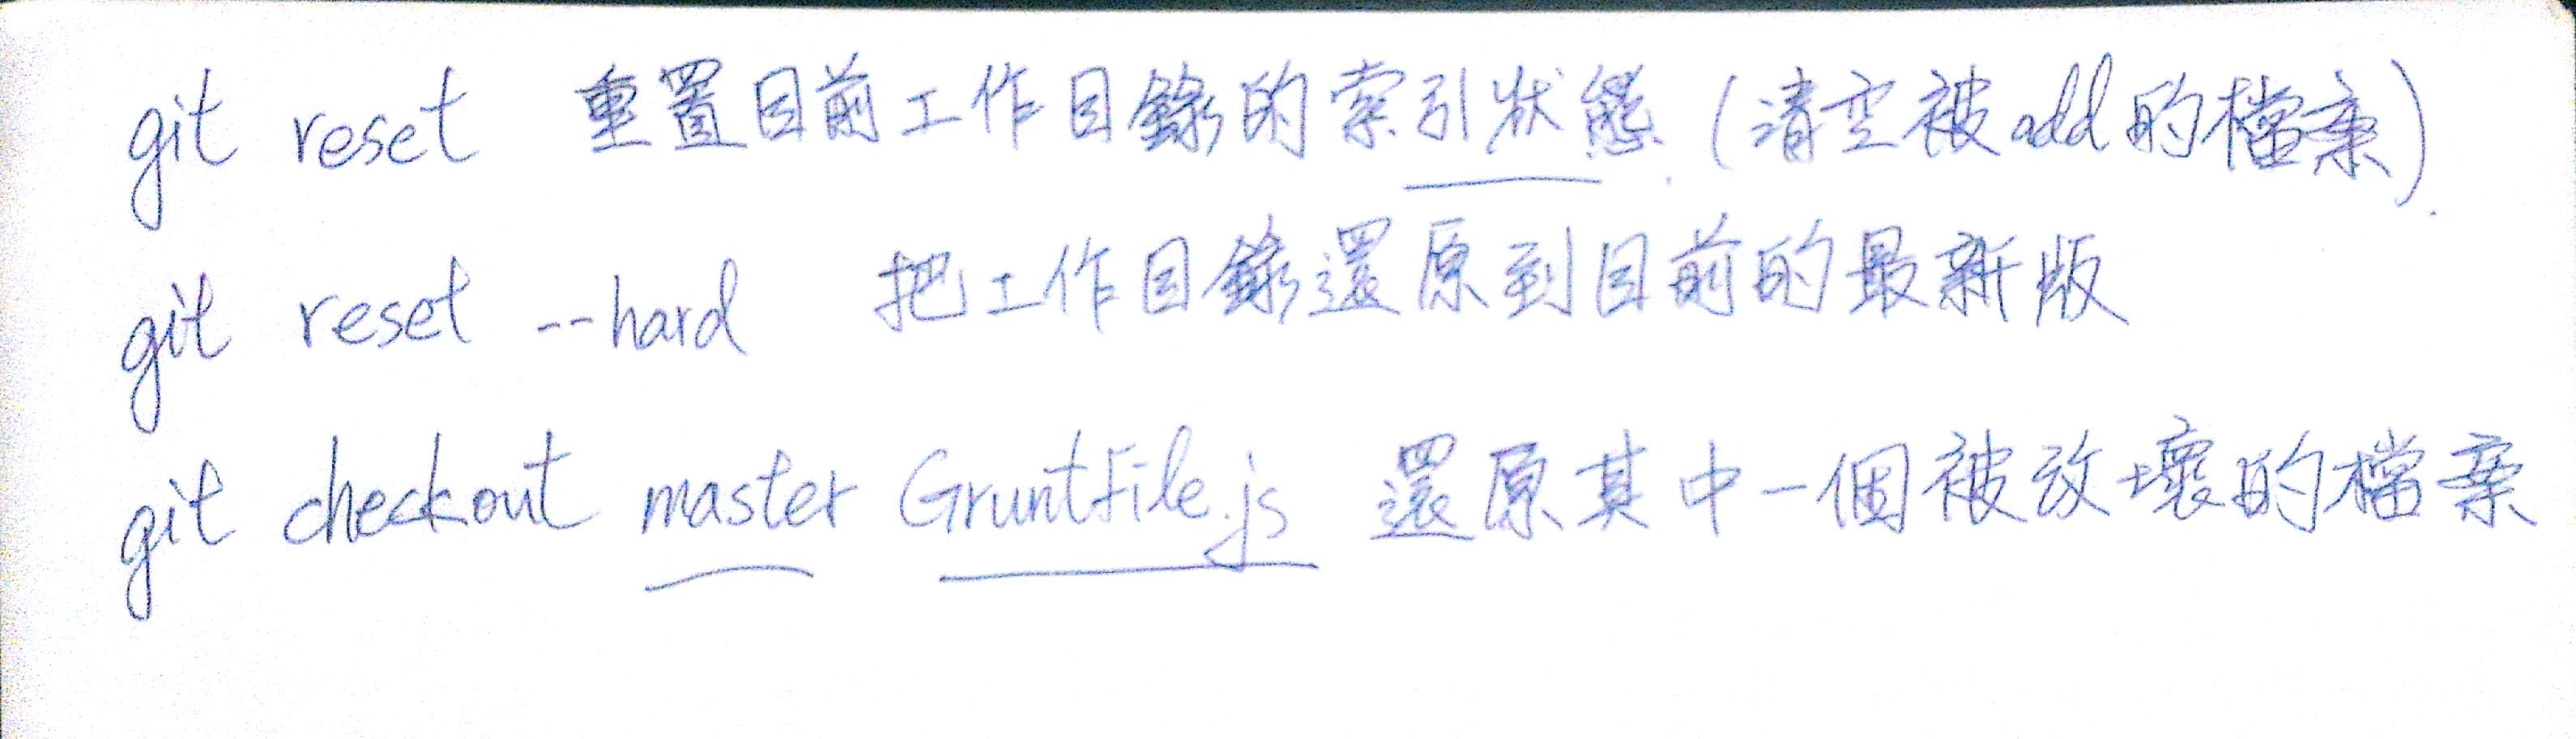 git reset 重置目前工作目錄的索引狀態 (清空被add的檔案)
git reset --hard 把工作目錄還原到目前的最新版
git checkout master Gruntfile.js 還原其中一個被改壞的檔案